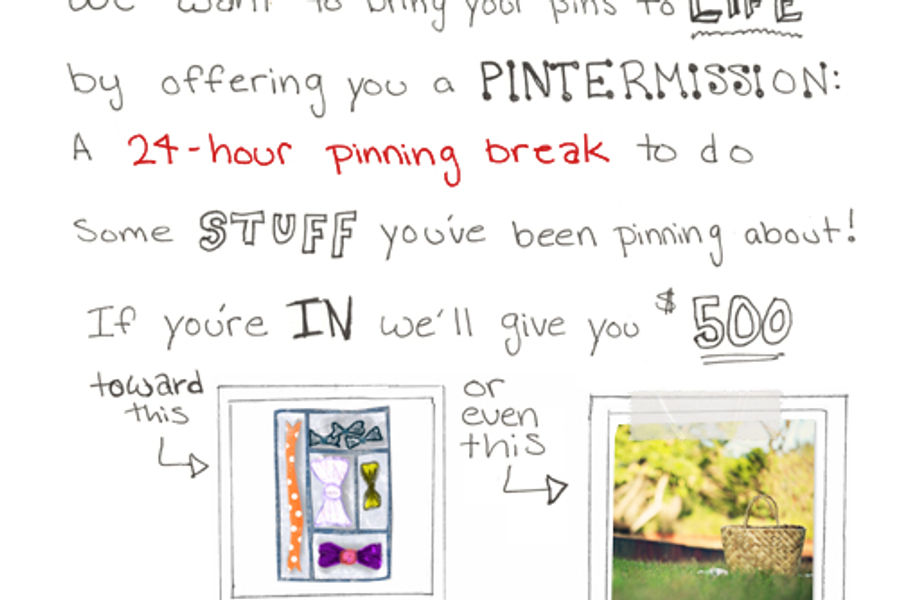 We want to bring your pins to LIFE
by offering you a PINTERMISSION:
A 24-hour pinning break to do
some STUFF you've been pinning about!
If you're IN we'll give you $500
toward
this
or
even
this